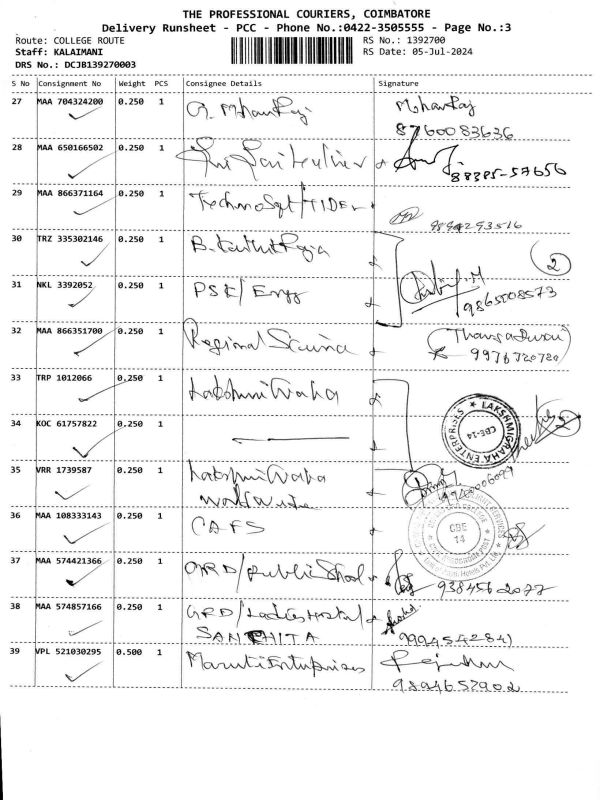 THE PROFESSIONAL COURIERS, COIMBATORE
Delivery Runsheet - PCC - Phone No.:0422-3505555 - Page No.:3
Route: COLLEGE ROUTE
RS No.: 1392700
Staff: KALAIMANI
RS Date: 05-Jul-2024
DRS No.: DCJB139270003
S No Consignment No Weight PCS Consignee Details Signature
27 MAA 704324200 0.250 1
8760083636
28 MAA 650166502 0.250 1
88385-57656
29 MAA 866371164 0.250 1
9894293516
30 TRZ 335302146 0.250 1 B. Karthik Raja
2
31 NKL 3392052 0.250 1 PSG/Engg
9865008573
32 MAA 866351700 0.250 1 Regional Science
9976720720
33 TRP 1012066 0.250 1 Lakshmi Graha
34 KOC 61757822 0.250 1
LAKSHMIGRAHA ENTERPRISES
CBE-14
35 VRR 1739587 0.250 1 Lakshmi Graha
36 MAA 108333143 0.250 1 CAFS
CBE
14
37 MAA 574421366 0.250 1 GRD/Public School
938456 2077
38 MAA 574857166 0.250 1 GRD/Ladies Hostel
SANKHITA
9994542841
39 VPL 521030295 0.500 1 Maruti Enterprises
9894657902